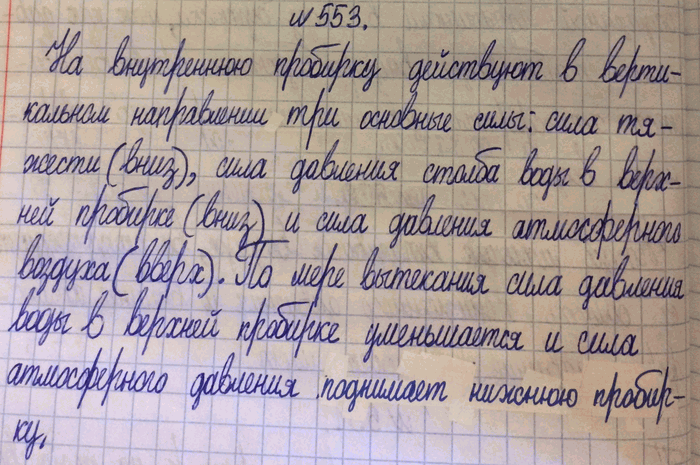 №553.
На внутреннюю пробирку действуют в верти-
кальном направлении три основные силы: сила тя-
жести (вниз), сила давления столба воды в верх-
ней пробирке (вниз) и сила давления атмосферного
воздуха (вверх). По мере вытекания сила давления
воды в верхней пробирке уменьшается и сила
атмосферного давления поднимает нижнюю пробир-
ку.